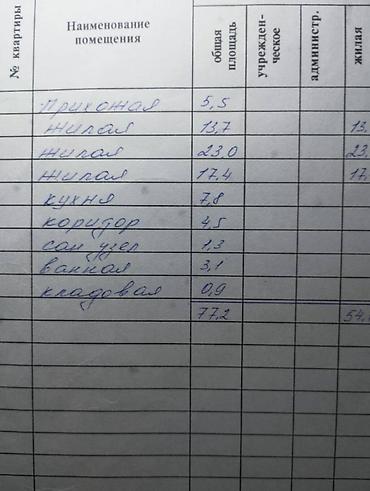 № квартиры
Наименование помещения
общая площадь
учрежден-ческое
администр.
жилая
прихожая 5,5
жилая 13,7 13,
жилая 23,0 23,
жилая 17,4 17,
кухня 7,8
коридор 4,5
сан узел 1,3
ванная 3,1
кладовая 0,9
77,2 54,